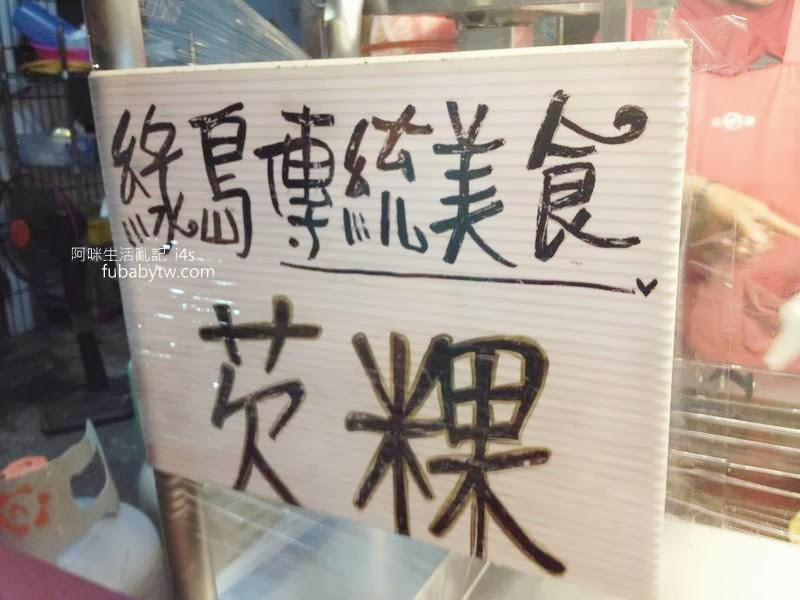 綠島傳統美食
阿咪生活亂記 i4s
fubabytw.com
芡粿